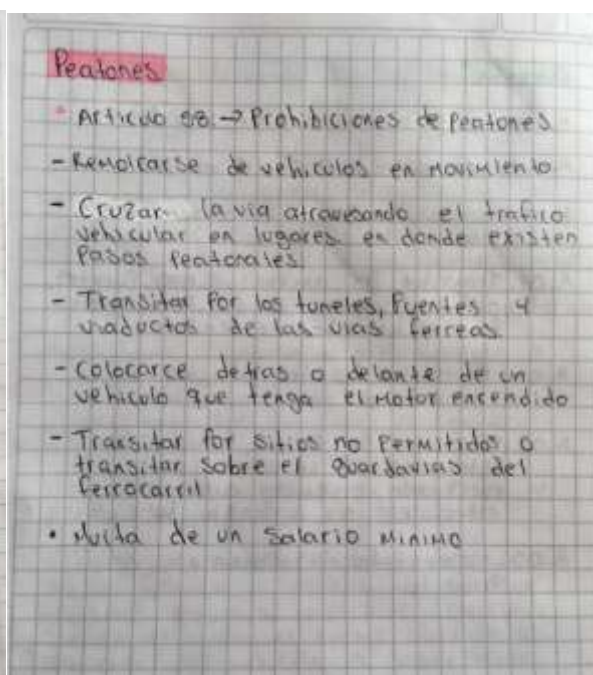 Peatones
* Articulo 58 → Prohibiciones de Peatones
- Remolcarse de vehiculos en Movimiento
- Cruzar la via atravesando el trafico
vehicular en lugares en donde existen
Pasos Peatonales.
- Transitar Por los tuneles, Puentes y
viaductos de las vias ferreas.
- Colocarce detras o delante de un
vehiculo que tenga el Motor encendido
- Transitar for sitios no Permitidos o
transitar sobre el guardavias del
ferrocarril
• Multa de un Salario MINIMO